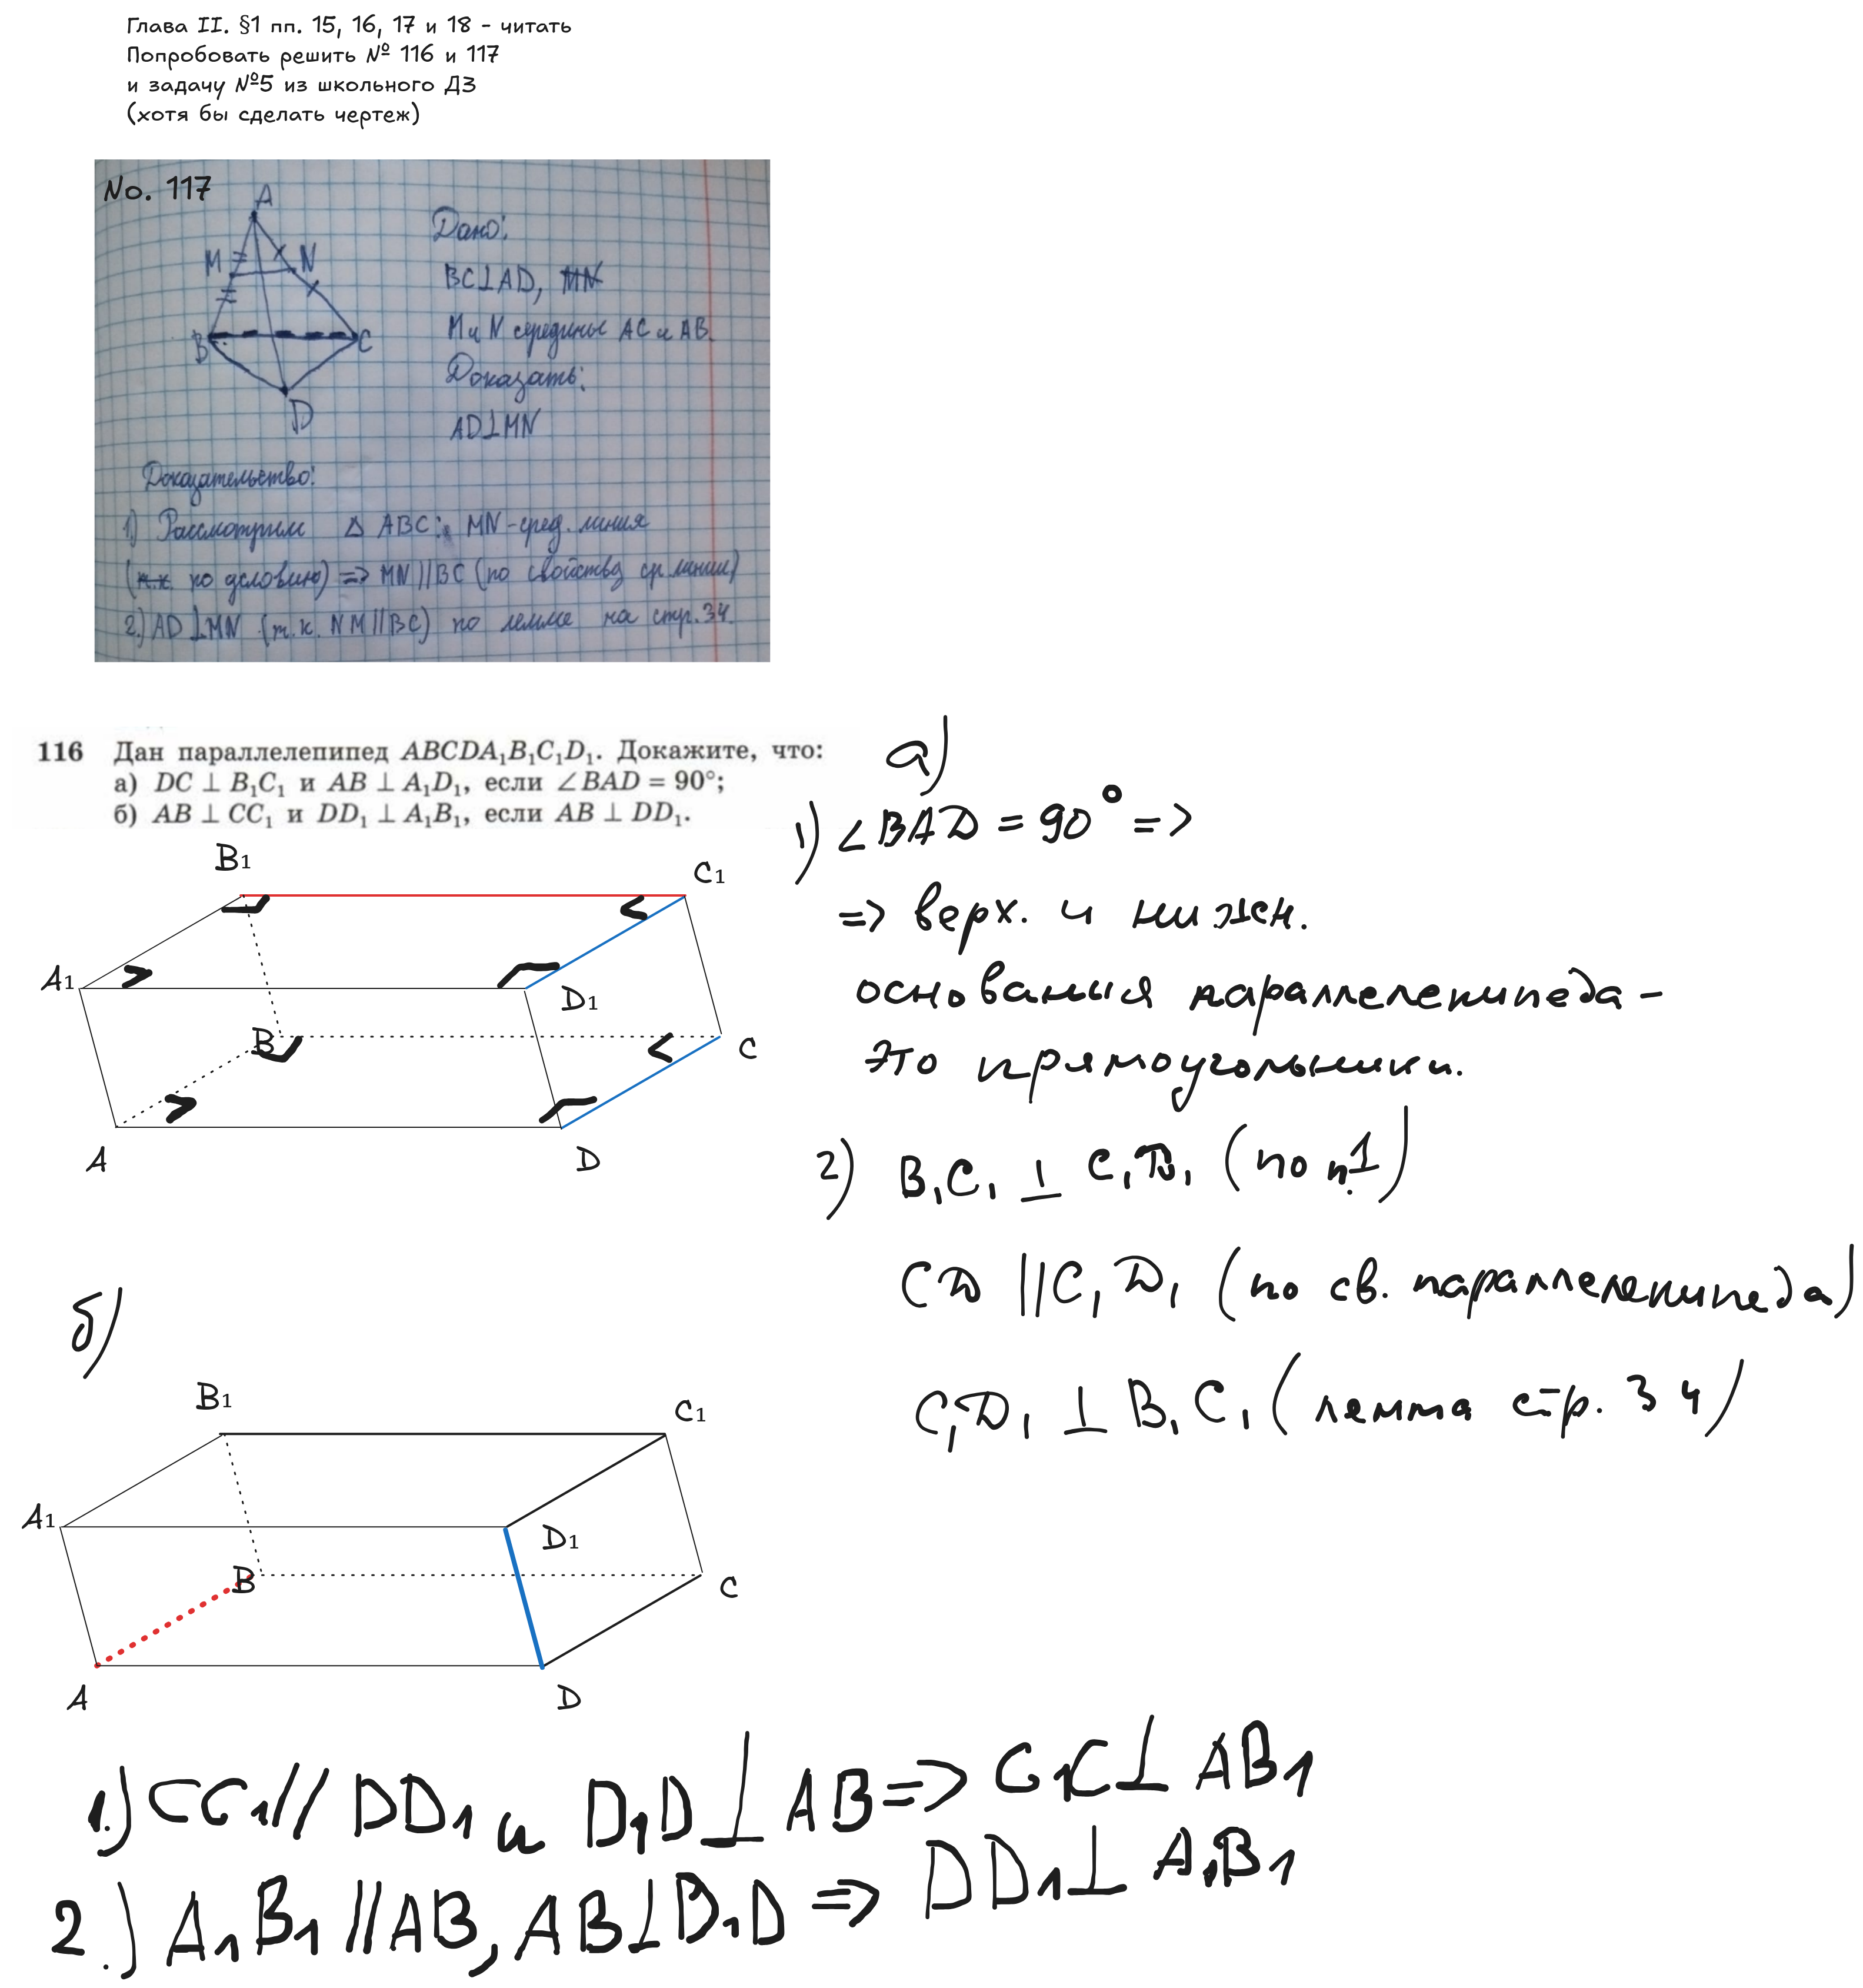 Глава II. §1 пп. 15, 16, 17 и 18 - читать
Попробовать решить № 116 и 117
и задачу №5 из школьного ДЗ
(хотя бы сделать чертеж)
No. 117
A
M
N
B
C
D
Дано:
BC⊥AD, MN
M и N середины AC и AB.
Доказать:
AD⊥MN
Доказательство:
1) Рассмотрим △ ABC: MN-сред. линия
(т.к. по условию) => MN||BC (по свойству ср линии)
2.) AD⊥MN (т.к. NM||BC) по лемме на стр.34.
116 Дан параллелепипед ABCDA₁B₁C₁D₁. Докажите, что:
а) DC ⊥ B₁C₁ и AB ⊥ A₁D₁, если ∠BAD = 90°;
б) AB ⊥ CC₁ и DD₁ ⊥ A₁B₁, если AB ⊥ DD₁.
B₁
C₁
A₁
D₁
B
C
A
D
а)
1) ∠BAD = 90° =>
=> верх. и нижн.
основания параллелепипеда -
это прямоугольники.
2) B₁C₁ ⊥ C₁D₁ (по п.1)
CD || C₁D₁ (по св. параллелепипеда)
C₁D₁ ⊥ B₁C₁ (лемма стр. 34)
б)
B₁
C₁
A₁
D₁
B
C
A
D
1.) CC₁ // DD₁ и D₁D ⊥ AB => C₁C ⊥ AB₁
2.) A₁B₁ || AB, AB ⊥ D₁D => DD₁ ⊥ A₁B₁